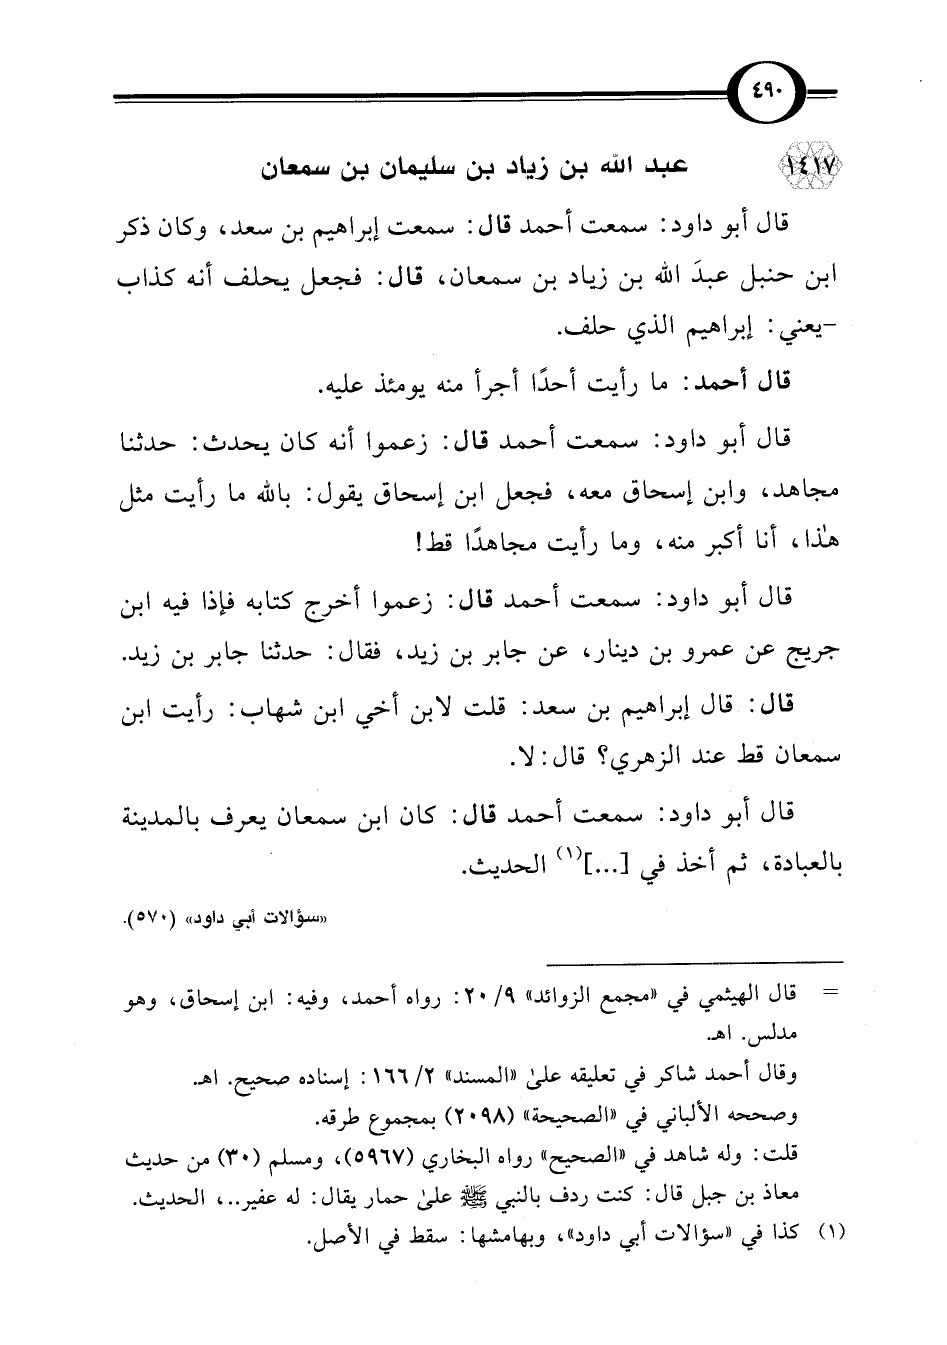 ٤٩٠
١٤١٧ عبد الله بن زياد بن سليمان بن سمعان
قال أبو داود: سمعت أحمد قال: سمعت إبراهيم بن سعد، وكان ذكر
ابن حنبل عبدَ الله بن زياد بن سمعان، قال: فجعل يحلف أنه كذاب
-يعني: إبراهيم الذي حلف.
قال أحمد: ما رأيت أحدًا أجرأ منه يومئذ عليه.
قال أبو داود: سمعت أحمد قال: زعموا أنه كان يحدث: حدثنا
مجاهد، وابن إسحاق معه، فجعل ابن إسحاق يقول: بالله ما رأيت مثل
هذا، أنا أكبر منه، وما رأيت مجاهدًا قط!
قال أبو داود: سمعت أحمد قال: زعموا أخرج كتابه فإذا فيه ابن
جريج عن عمرو بن دينار، عن جابر بن زيد، فقال: حدثنا جابر بن زيد.
قال: قال إبراهيم بن سعد: قلت لابن أخي ابن شهاب: رأيت ابن
سمعان قط عند الزهري؟ قال: لا.
قال أبو داود: سمعت أحمد قال: كان ابن سمعان يعرف بالمدينة
بالعبادة، ثم أخذ في [...](١) الحديث.
«سؤالات أبي داود» (٥٧٠).
= قال الهيثمي في «مجمع الزوائد» ٩/ ٢٠: رواه أحمد، وفيه: ابن إسحاق، وهو
مدلس. اهـ.
وقال أحمد شاكر في تعليقه علىٰ «المسند» ٢/ ١٦٦: إسناده صحيح. اهـ.
وصححه الألباني في «الصحيحة» (٢٠٩٨) بمجموع طرقه.
قلت: وله شاهد في «الصحيح» رواه البخاري (٥٩٦٧)، ومسلم (٣٠) من حديث
معاذ بن جبل قال: كنت ردف بالنبي ﷺ علىٰ حمار يقال: له عفير..، الحديث.
(١) كذا في «سؤالات أبي داود»، وبهامشها: سقط في الأصل.